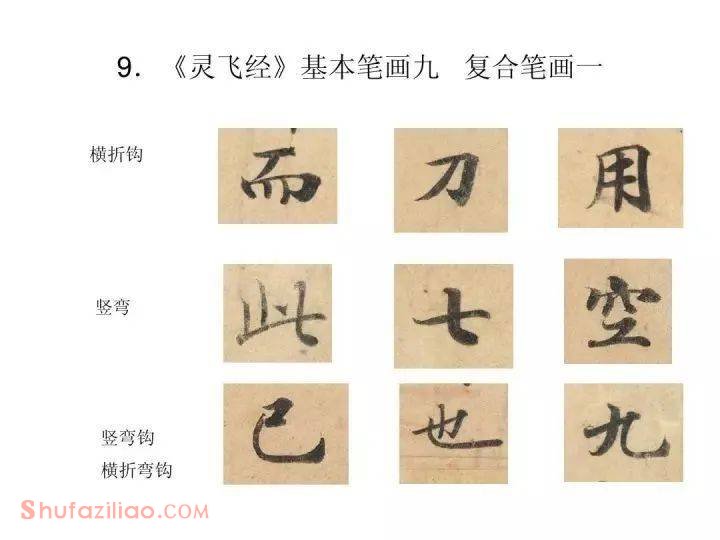 9. 《灵飞经》基本笔画九 复合笔画一
横折钩 而 刀 用
竖弯 此 七 空
竖弯钩 己 也 九
横折弯钩
Shufaziliao.com